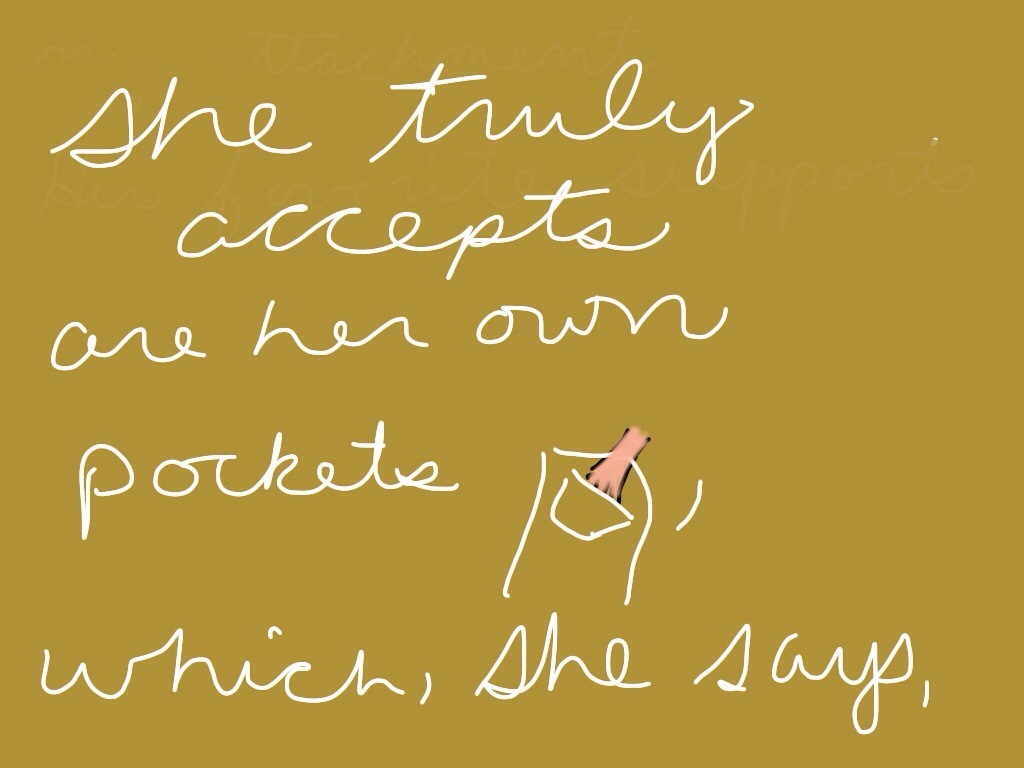 She truly
accepts
are her own
pockets ,
which, she says,